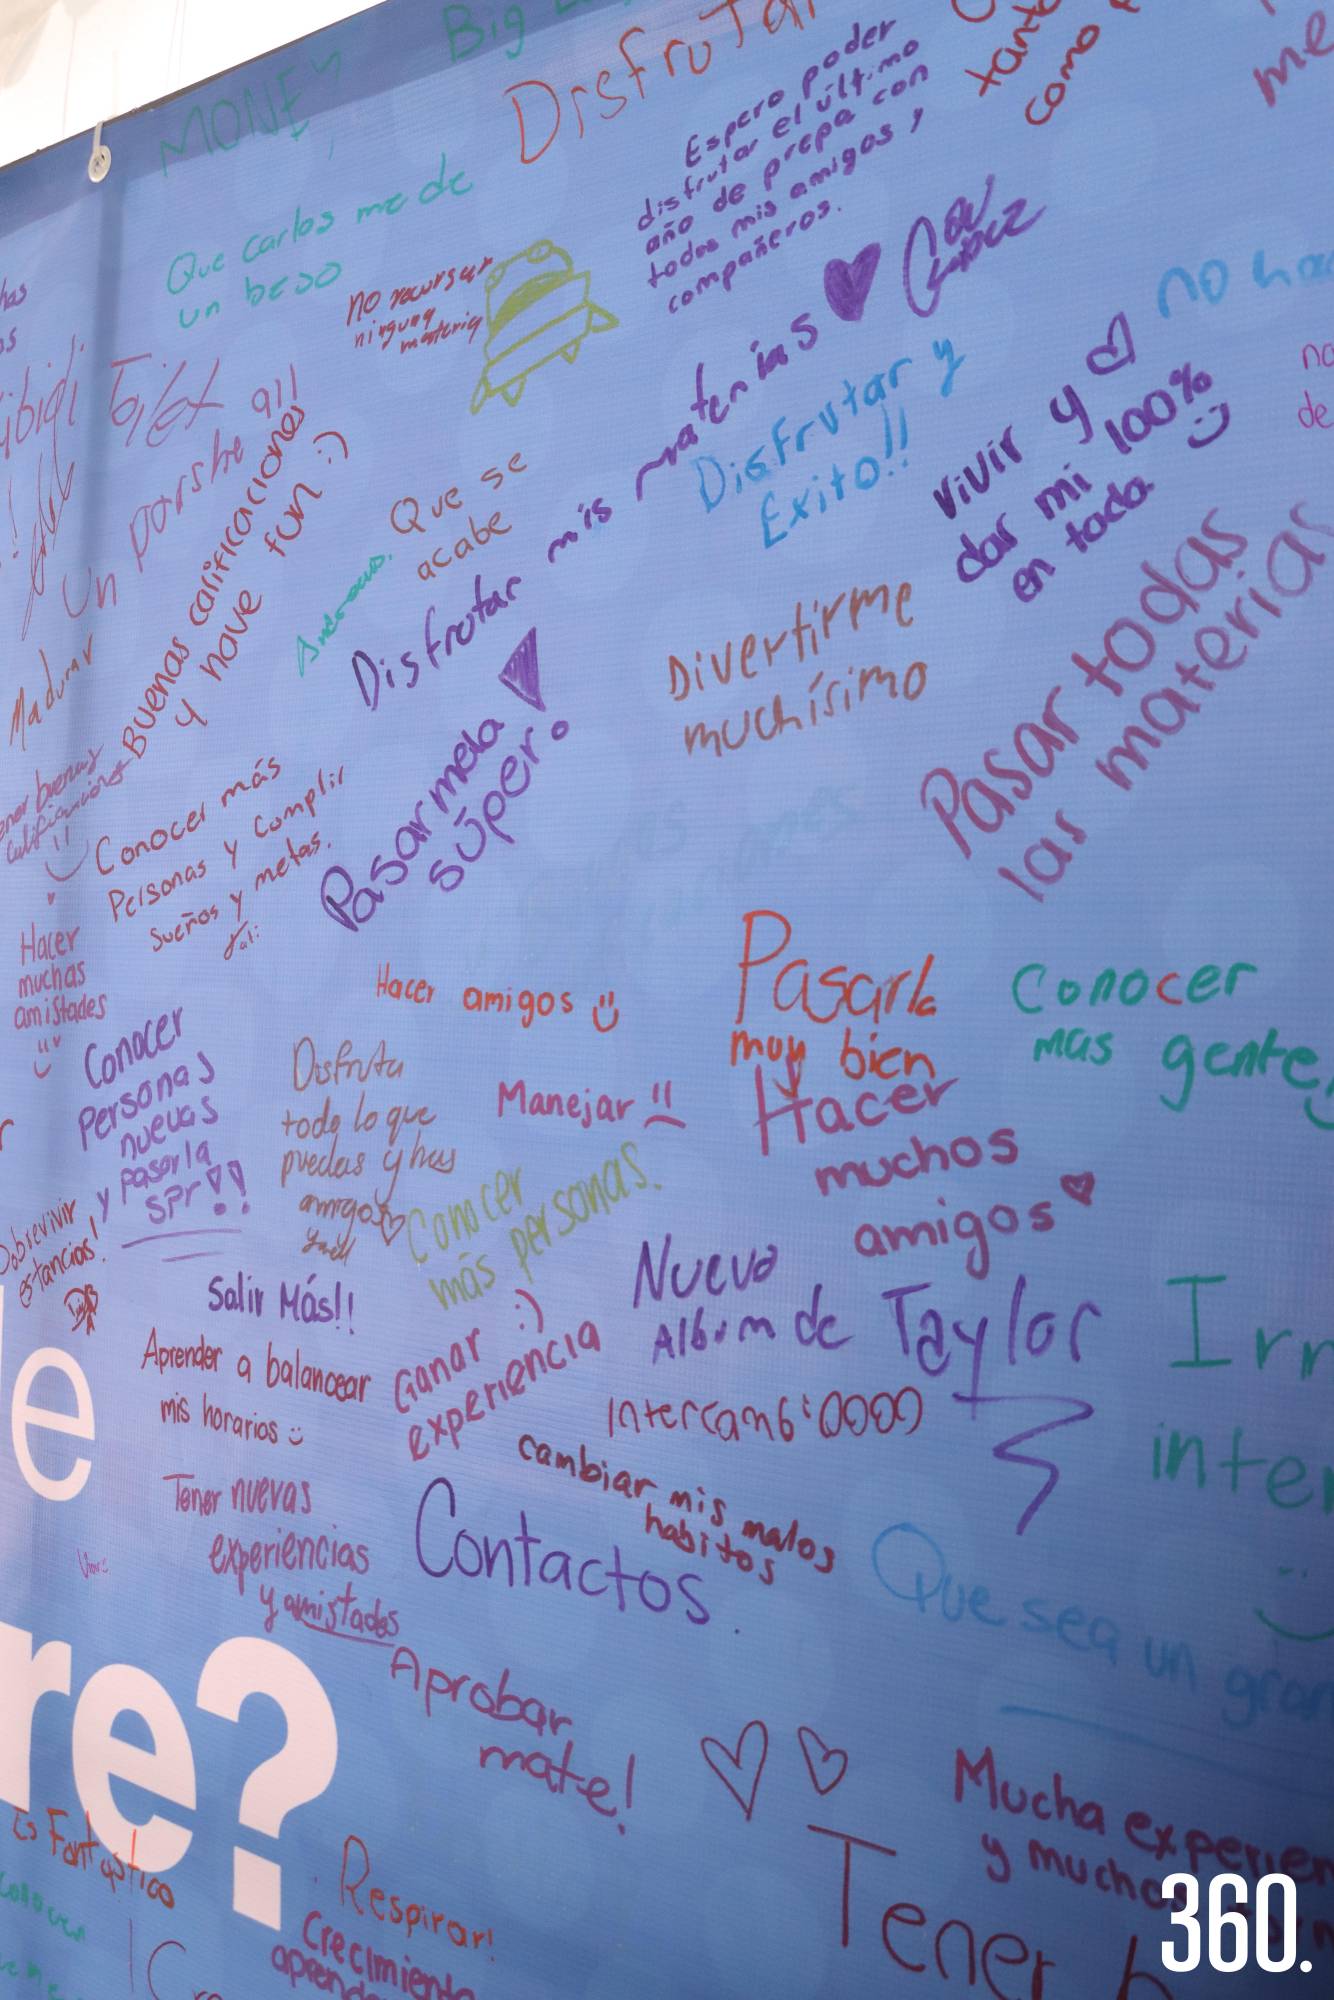 MONEY
Big
Disfrutar
Espero poder
disfrutar el último
año de prepa con
todos mis amigos y
compañeros.
como
me
Que carlos me de
un beso
no recursar
ninguna
materia
no
un porshe 911
Buenas calificaciones
y have fun :)
Que se
acabe
Disfrutar mis materias
Disfrutar y
Exito!!
Vivir y
dar mi 100%
en todo
Madurar
Divertirme
muchísimo
Pasar todas
las materias
Pasarmela
súper!
buenas
calificaciones
Conocer más
Personas y Cumplir
sueños y metas.
Hacer
muchas
amistades
Hacer amigos
Pasarla
muy bien
Conocer
mas gente
Conocer
Personas
nuevas
y pasarla
spr!!
Disfruta
todo lo que
puedas y haz
amigos
Manejar
Hacer
muchos
amigos
Conocer
más personas.
Sobrevivir
estancias!
Salir Más!!
Nuevo
Album de Taylor
Aprender a balancear
mis horarios
Ganar :)
experiencia
Intercambioooo
cambiar mis malos
habitos
Tener nuevas
experiencias
y amistades
Contactos.
Que sea un gran
Aprobar
mate!
re?
Es Fantastico
Respirar!
Crecimiento
Mucha
y muchos
Tener
360.